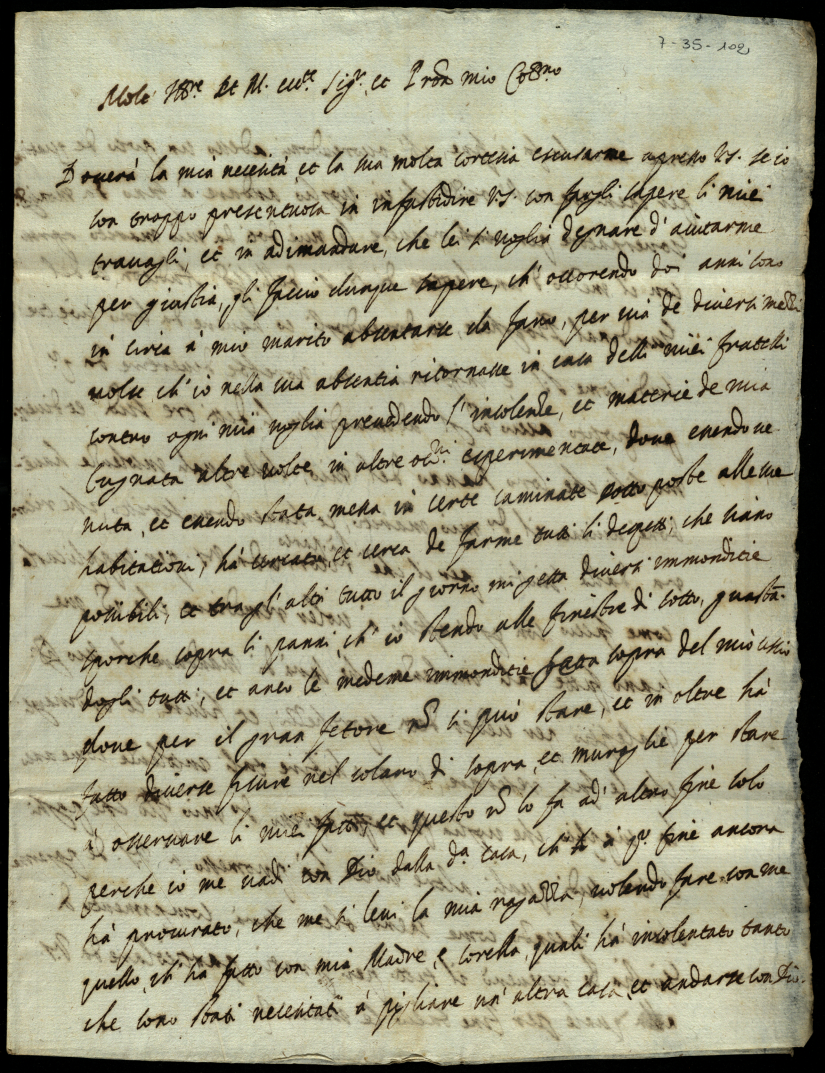 7-35-102
Molt Ill.re et M. ecc.te Sig.r et Pron mio Oss.mo
Doverà la mia necessità, et la sua molta cortesia escusarme apresso V.S. se io
con troppo presentuosa in infastidire V.S. con fargli sapere li miei
travagli, et in adimandare, che lei si voglia degnare d' aiutarme
per giustitia, gli faccio dunque sapere, ch' occorendo doi anni sono
in circa à mio marito absentarse da Fano, per via de diversi mezzi
volse, ch' io nella sua absentia ritornasse in casa delli miei fratelli
contro ogni mia voglia prevedendo l' insolenze, et materie de mia
Cugnata altre volte, in altre occ.ni esperimentate, dove essendo ve
nuta, et essendo stata messa in certe caminate sotto poste alle sue
habitationi, hà cercato, et cerca de farme tutti li despetti, che siano
possibili, et tra gl' altri tutto il giorno mi getta diversi immonditie
sporche sopra li panni ch' io stendo alle finestre di sotto, guastan
dogli tutti, et anco le medeme immonditie getta sopra del mio uscio
dove per il gran fetore nō si può stare, et in oltre hà
fatto diverse fissure nel solaro di sopra, et muraglie per stare
à osservare li miei fatti, et questo nō lo fa ad' altro fine solo
perche io me vadi con Dio dalla d.a casa, ch' à q.o fine ancora
hà procurato, che me si levi la mia ragazza, volendo fare con me
quello, ch' hà fatto con mia Madre, e sorella, quali hà insolentato tanto
che sono stati necessitati à pigliare un' altra casa, et andarse con Dio.